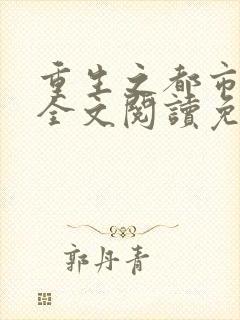 重生之都市
全文閱讀免
郭丹青